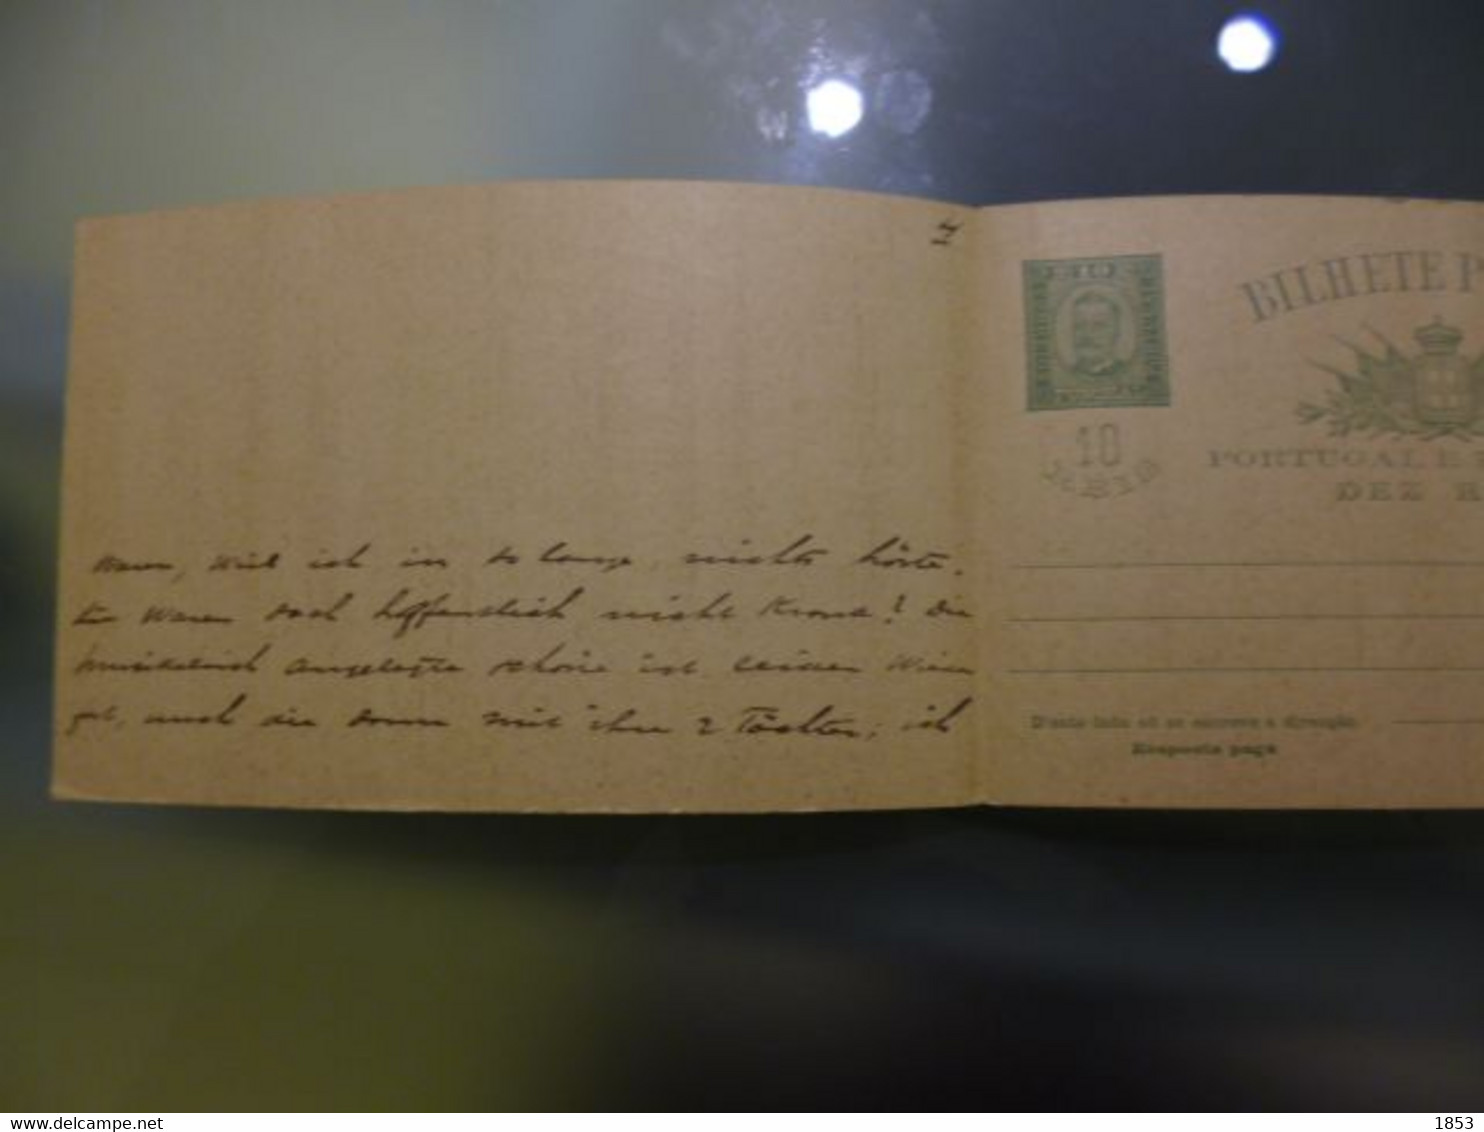 4
waren, weil ich in so lange nichts hörte.
Sie waren doch hoffentlich nicht krank? Die
musikalisch angelegte schöne ist
gut, auch die mit ihre 2 Töchter; ich
10
BILHETE P
10
REIS
PORTUGAL E
DEZ R
D'este lado só se escreve a direcção
Resposta paga
www.delcampe.net
1853